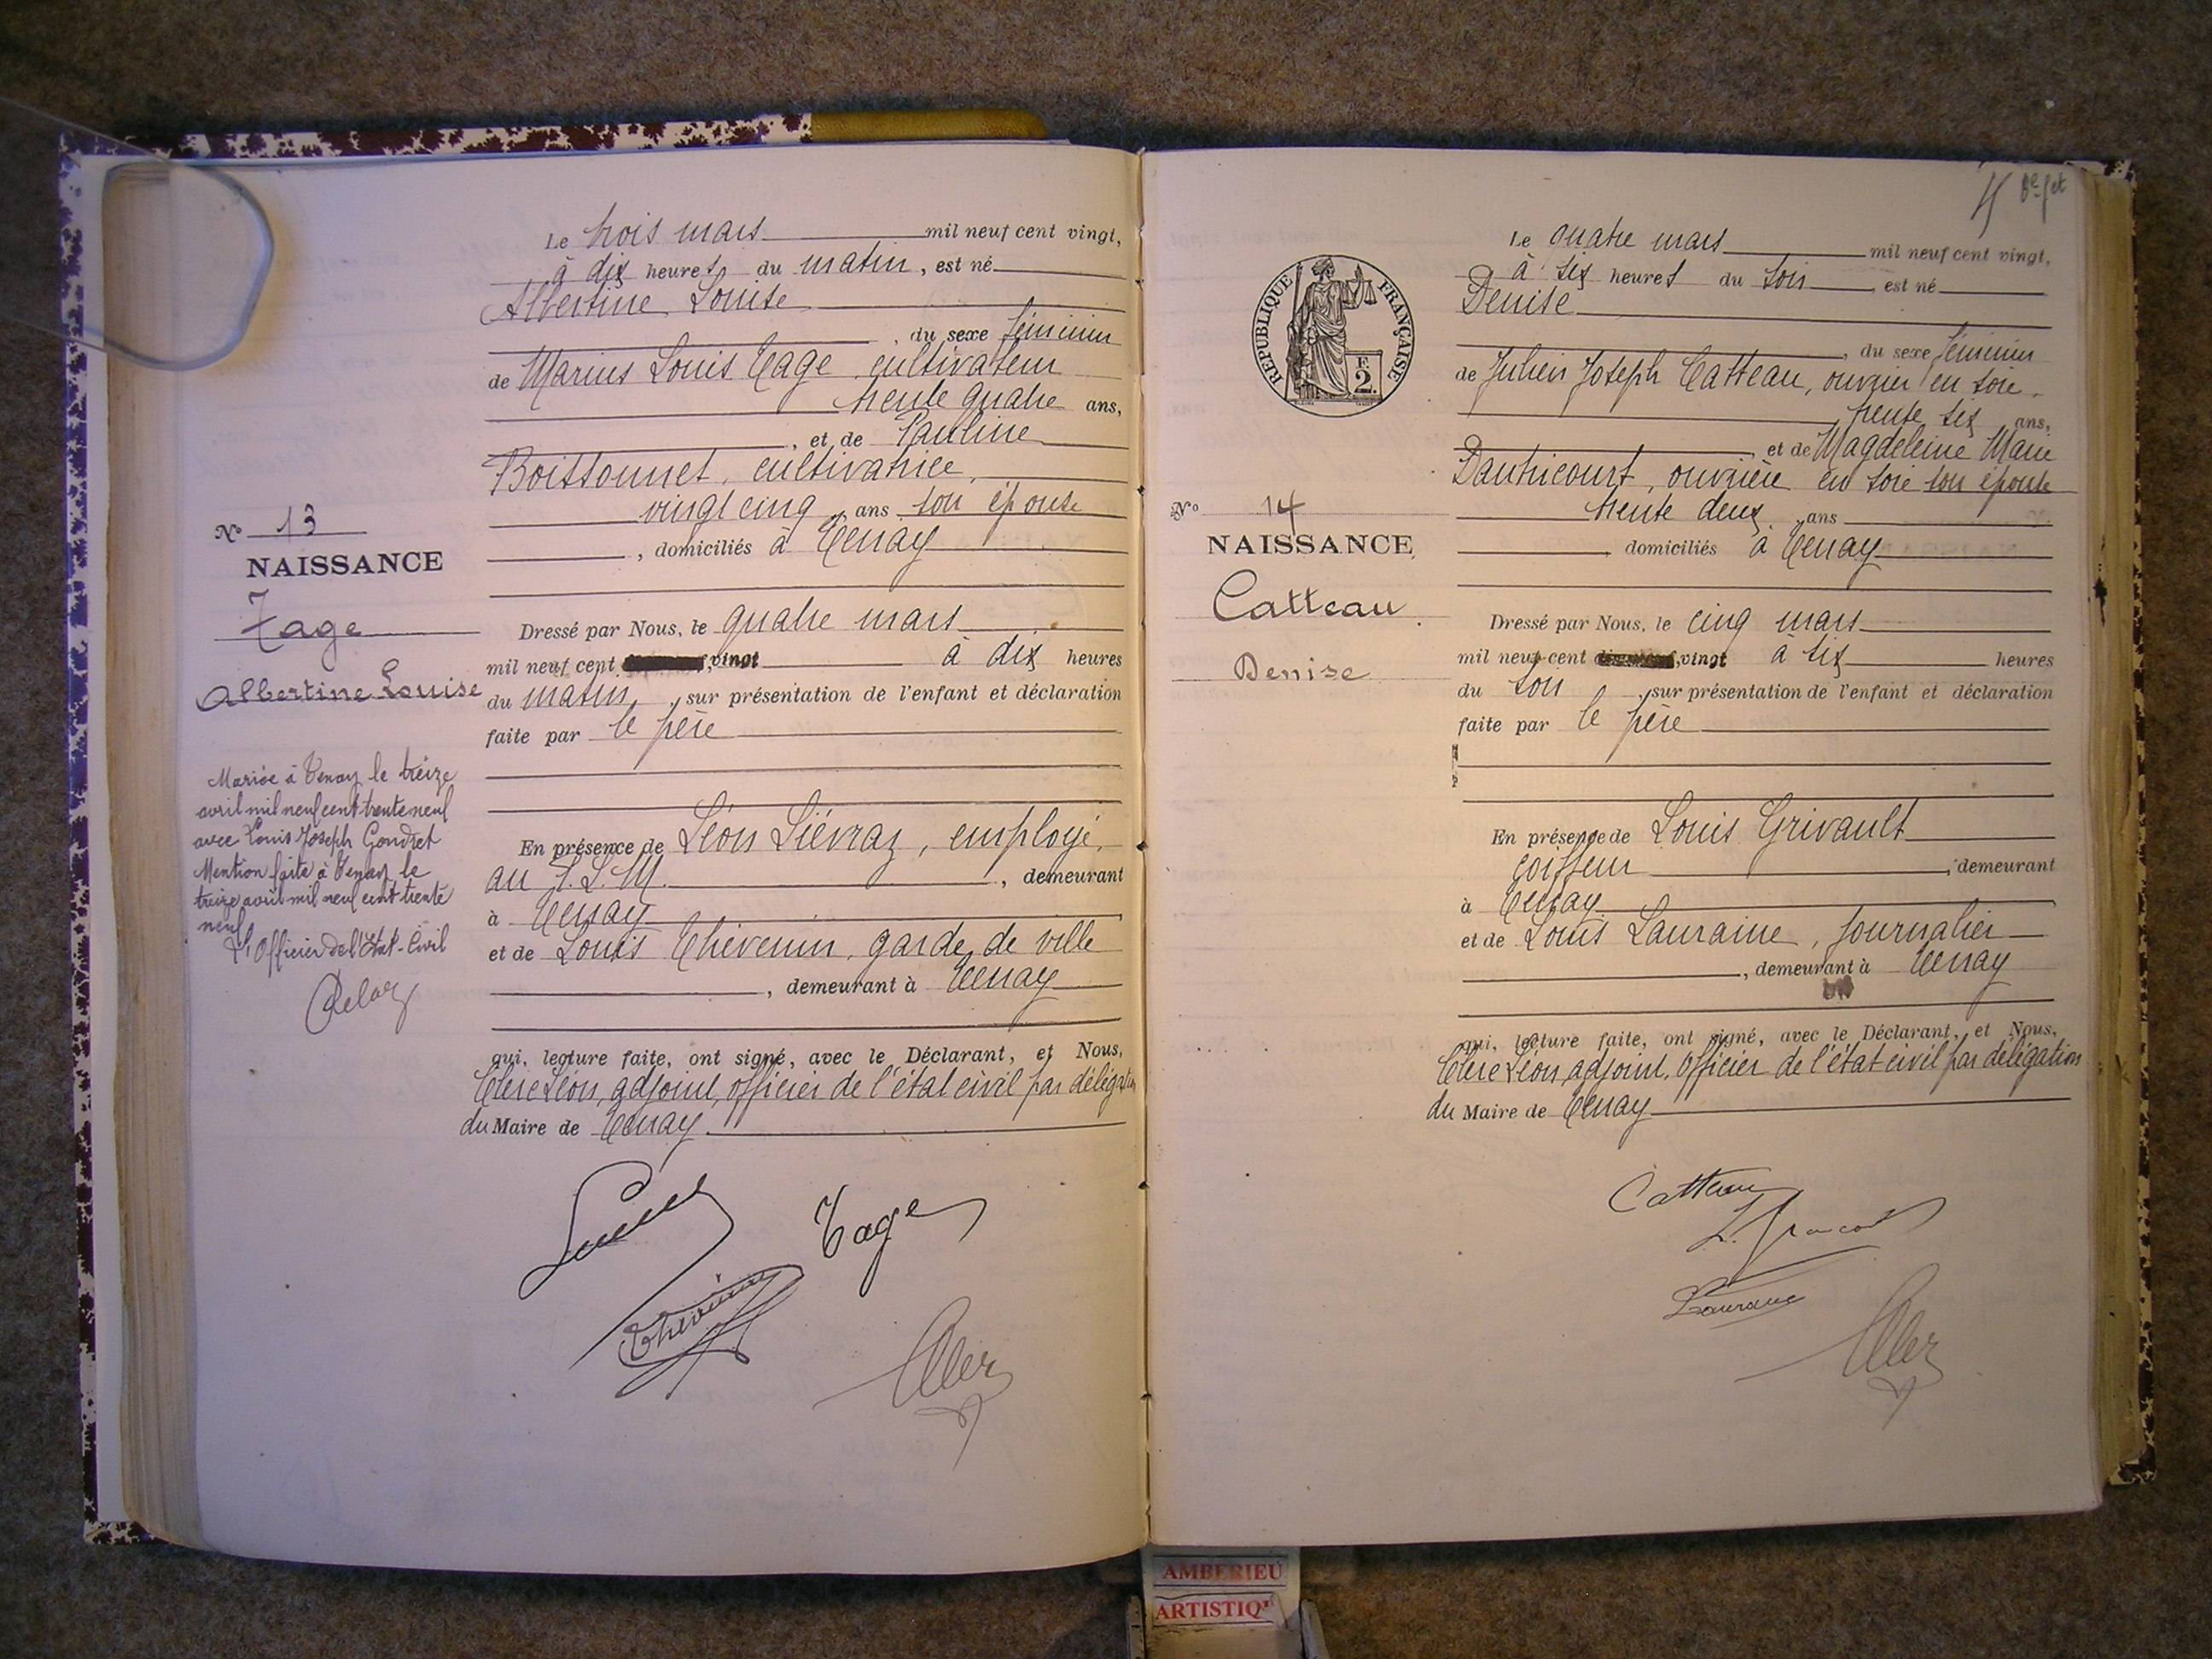 Le trois mars mil neuf cent vingt,
à dix heures du matin, est né
Albertine Louise
, du sexe féminin
de Marius Louis Tage, cultivateur
trente quatre ans,
, et de Pauline
Boissonnet, cultivatrice,
vingt cinq ans son épouse
, domiciliés à Tenay
N° 13
NAISSANCE
Tage
Albertine Louise
Dressé par Nous, le quatre mars
mil neuf cent vingt à dix heures
du matin, sur présentation de l'enfant et déclaration
faite par le père
Mariée à Tenay le treize
avril mil neuf cent trente neuf
avec Louis Joseph Gondret
Mention faite à Tenay le
treize avril mil neuf cent trente
neuf
L'Officier de l'Etat-Civil
En présence de Léon Liévraz, employé,
au P. L. M. , demeurant
à Tenay
et de Louis Thévenin, garde de ville
, demeurant à Tenay
qui, lecture faite, ont signé, avec le Déclarant, et Nous,
Clerc Léon, adjoint, officier de l'état civil par délégation
du Maire de Tenay
Tage
Thévenin
15
REPUBLIQUE FRANÇAISE
F. 2.
Le quatre mars mil neuf cent vingt,
à six heures du soir, est né
Denise
, du sexe féminin
de Julien Joseph Catteau, ouvrier en soie,
trente six ans,
et de Magdeleine Marie
Dautricourt, ouvrière en soie son épouse
trente deux ans
, domiciliés à Tenay
N° 14
NAISSANCE
Catteau
Denise
Dressé par Nous, le cinq mars
mil neuf cent vingt à six heures
du soir, sur présentation de l'enfant et déclaration
faite par le père
En présence de Louis Grivault
coiffeur , demeurant
à Tenay
et de Louis Lauraine, journalier
, demeurant à Tenay
qui, lecture faite, ont signé, avec le Déclarant, et Nous,
Clerc Léon, adjoint, officier de l'état civil par délégation
du Maire de Tenay
Catteau
Lauraine
AMBERIEU
ARTISTIQ